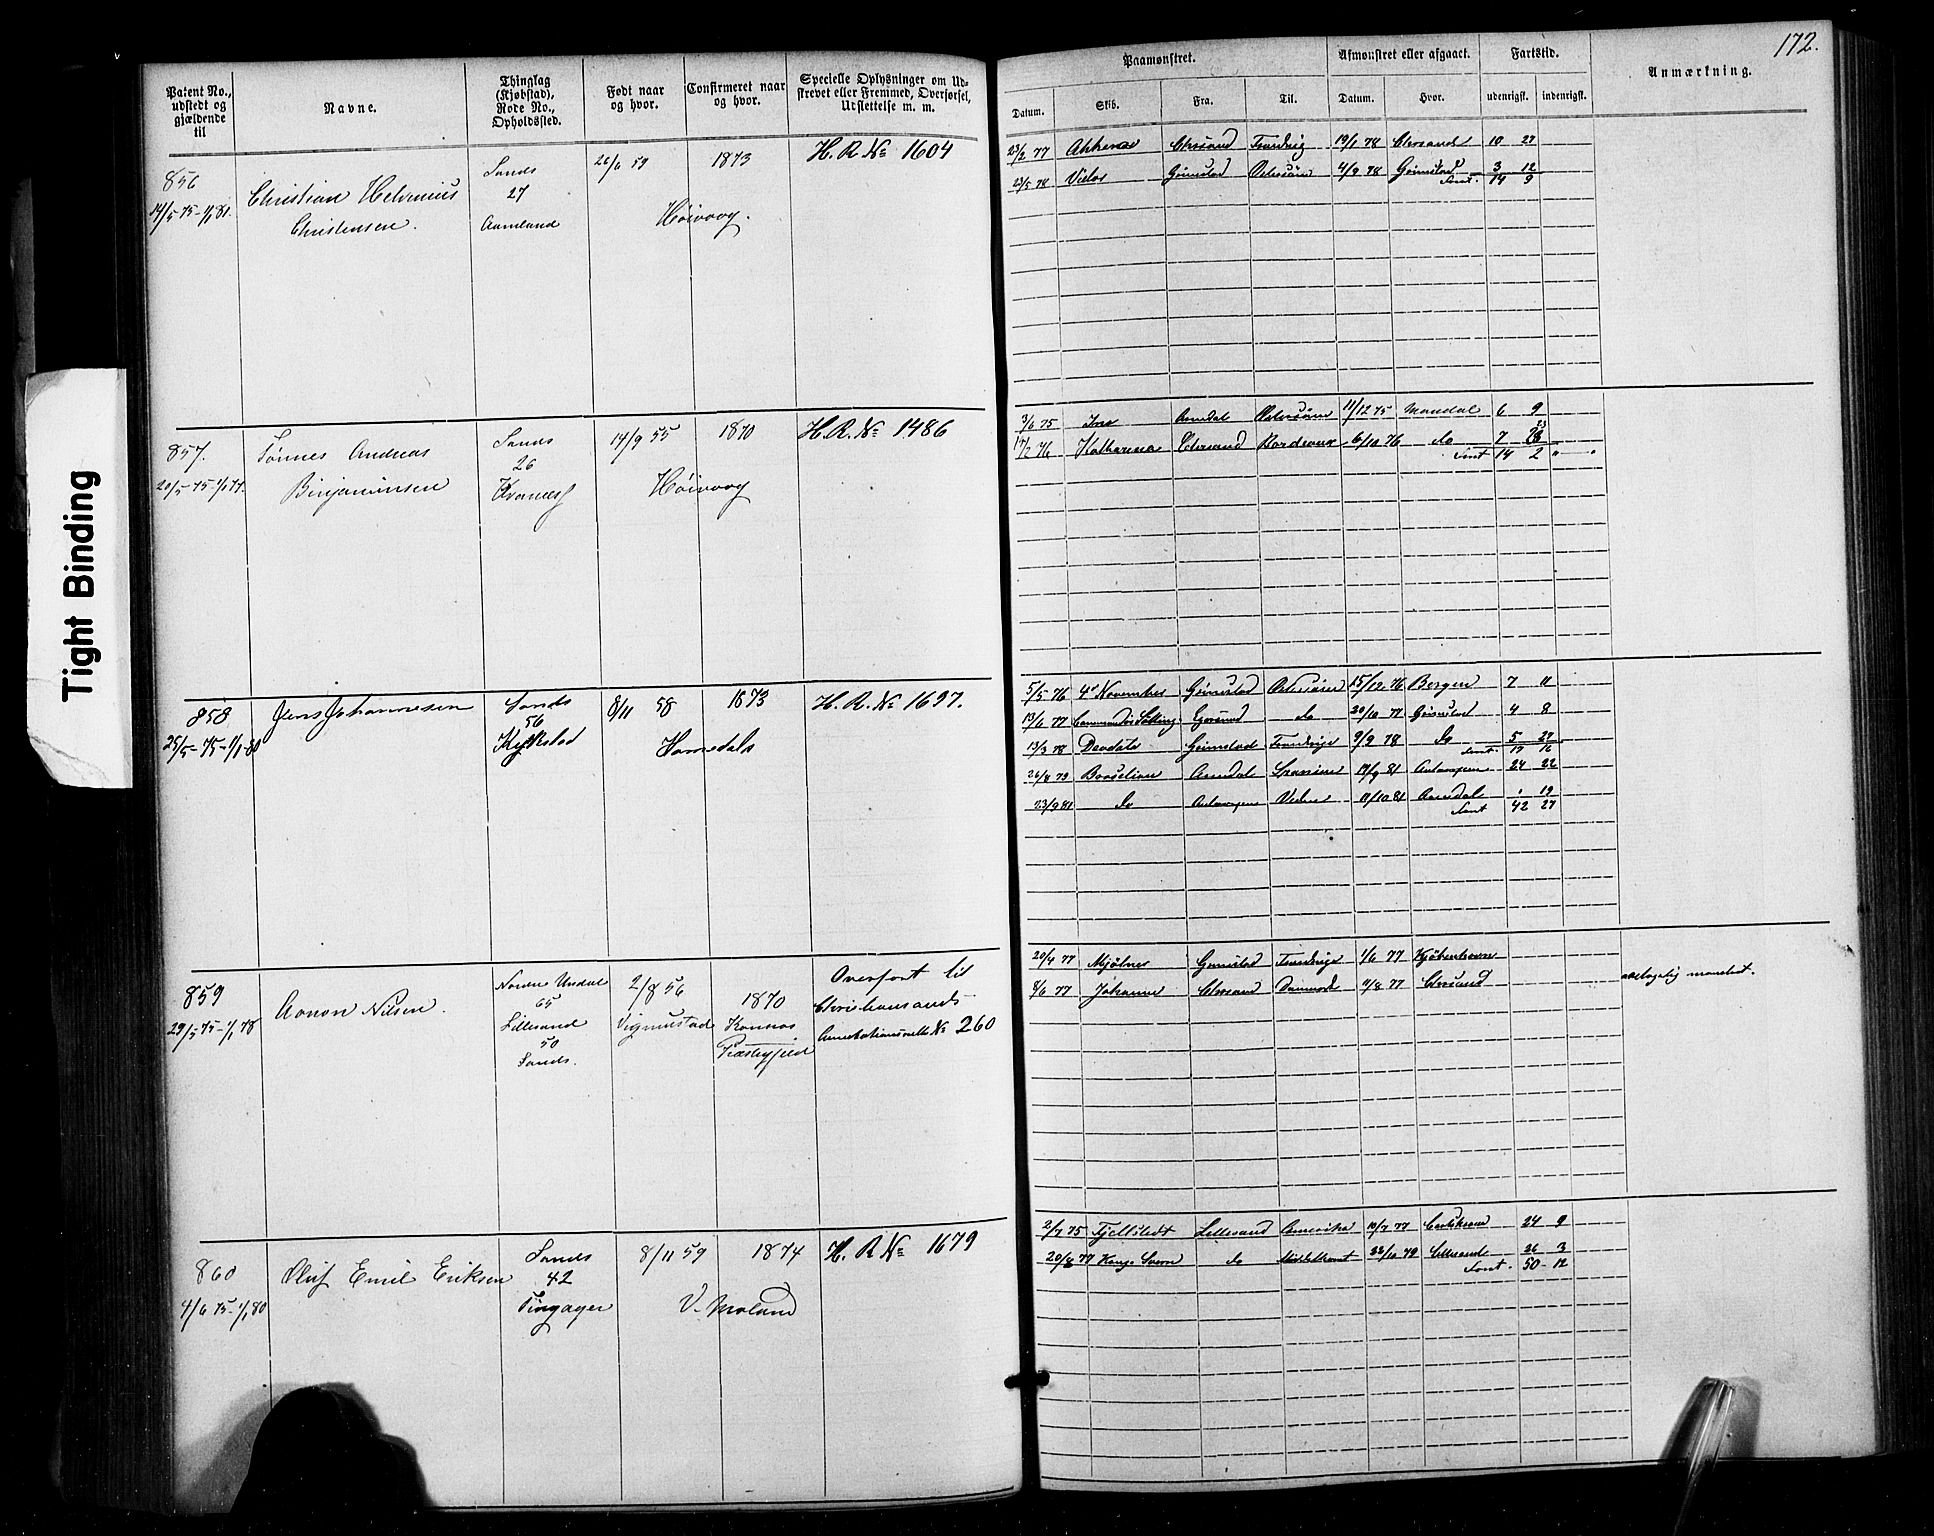 Tight Binding
Patent No., udstedt og gjældende til
Navne.
Thinglag (Kjøbstad), Rode No., Opholdssted.
Født naar og hvor.
Confirmeret naar og hvor.
Specielle Oplysninger om Udskrevet eller Fremmed, Overførsel, Udslettelse m. m.
Paamønstret.
Afmønstret eller afgaaet.
Fartstid.
Anmærkning.
172.
Datum.
Skib.
Fra.
Til.
Datum.
Hvor.
udenrigsk.
indenrigsk.
856
14/5 75-1/1 81.
Christian
Christensen.
Sands
27
Aamland
26/6 59
1873
Høivaag.
H. R. No 1604
23/2 77 Chrsand 19/1 78 Chrsand 10 27
23/5 78 Grimstad Østersøen 4/9 78 Grimstad 3 12
Smt. 14 9
857.
20/5 75-1/1 77.
Tønnes Andreas
Binjaminsen
Sands
26
14/9 55
1870
Høivaag
H. R. No 1486
3/6 75 Arendal Østersøen 11/12 75 Mandal 6 9
17/2 76 Katharina Chrsand Bordeaux 6/10 76 do 7 23
Smt 14 2 " "
858
25/5-75-1/1-80
Jens Johannesen
Sands
56
Kjekstad
8/11 58
1873
Homedals
H. R. No 1697.
5/5 76 4de November Grimstad Østersøen 15/12 76 Bergen 7 11
13/6 77 do 20/10 77 Grimstad 4 8
13/3 78 Deodata Grimstad 9/9 78 do 5 27
Smt 17 16
26/8 79 Arendal 19/9 81 Antwerpen 24 22
23/9 81 do Antwerpen 11/10 81 Arendal 1 19
Smt 42 27
859
29/5 75-1/1 78
Aanon Nilsen.
Nordre Undal
65
Lillesand
50
Sands.
2/8 56
Vigmustad
1870
Overført til
Christiansands
Annotationsrulle No 260
20/4 77 Mjølner Grimstad 1/6 77 Kjøbenhavn
8/6 77 Johanne Chrsand 11/8 77 Chrsand
ulovlig mønstret.
860
4/6 75-1/1 80
Oluf Emil Eriksen
Sands
42
Tingager
8/11 59
1874
V. Moland
H. R No 1679
2/7 75 Fjeldstedt Lillesand Amerika 10/7 77 24 9
20/8 77 Kong Sverre do 22/10 79 Lillesand 26 3
Smt. 50 - 12